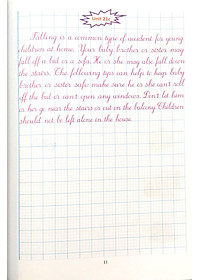 Unit 21c
Falling is a common type of accident for young
children at home. Your baby brother or sister may
fall off a bed or a sofa. He or she may also fall down
the stairs. The following tips can help to keep baby
brother or sister safe: make sure he or she can't roll
off the bed or can't open any windows. Don't let him
or her go near the stairs or out in the balcony. Children
should not be left alone in the house.
11